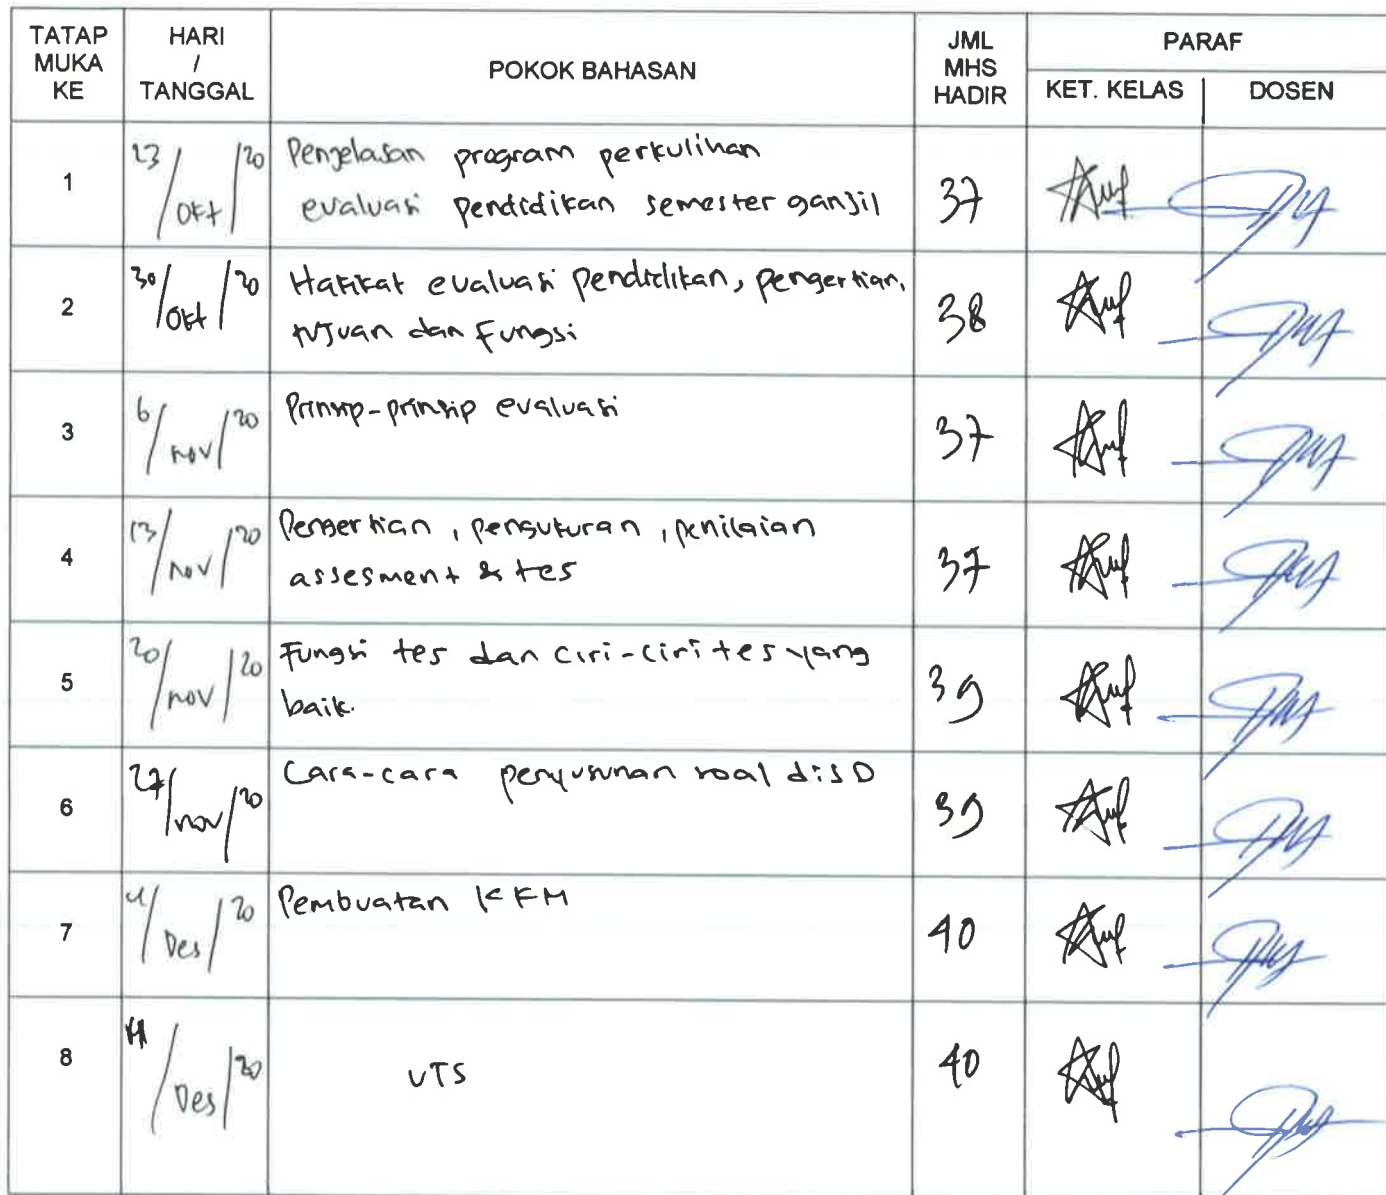 TATAP MUKA KE
HARI / TANGGAL
POKOK BAHASAN
JML MHS HADIR
PARAF
KET. KELAS
DOSEN
1
23/Okt/20
Penjelasan program perkulihan
evaluasi pendidikan semester ganjil
37
2
30/Okt/20
Hakikat evaluasi pendidikan, pengertian,
tujuan dan Fungsi
38
3
6/nov/20
Prinsip-prinsip evaluasi
37
4
13/nov/20
Pengertian, pengukuran, penilaian
assesment & tes
37
5
20/nov/20
Fungsi tes dan ciri-ciri tes yang
baik.
39
6
27/nov/20
Cara-cara penyusunan soal di SD
39
7
4/Des/20
Pembuatan KKM
40
8
11/Des/20
UTS
40